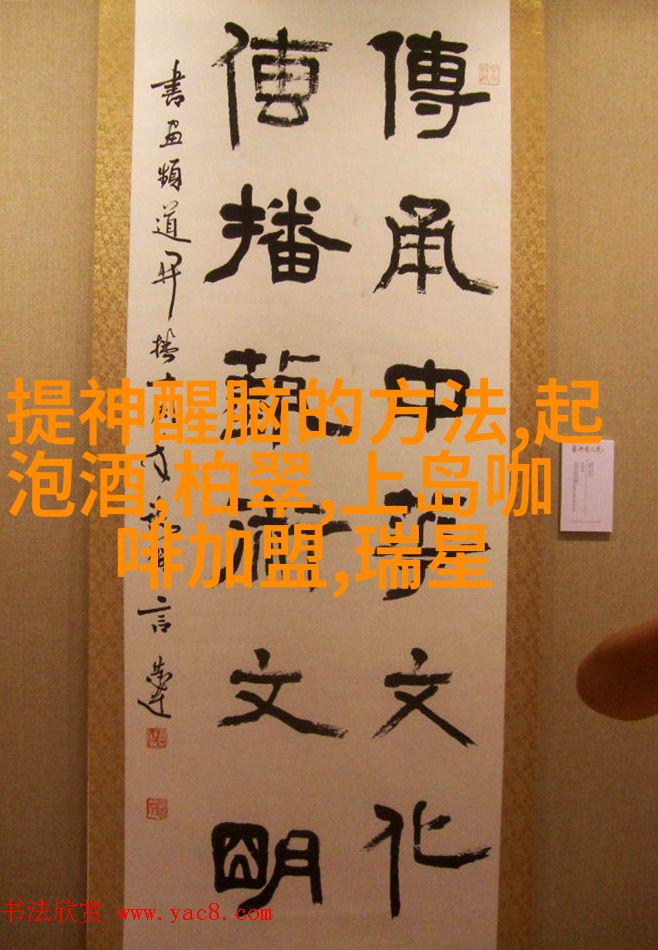 傳承中華文化
傳播藝術文明
書画頻道开播
提神醒脑的方法,起
泡酒,柏翠,上岛咖
啡加盟,瑞星
书法欣赏 www.yac8.com